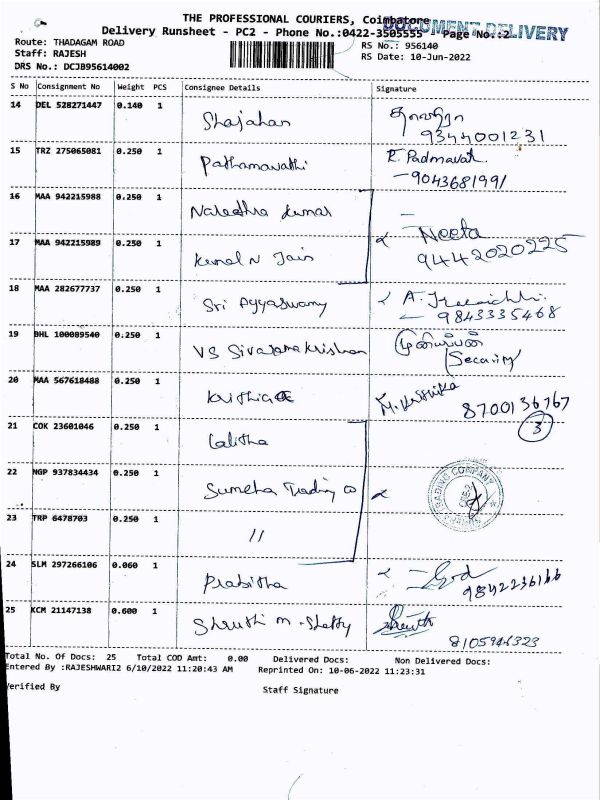 THE PROFESSIONAL COURIERS, Coimbatore
DOCUMENT DELIVERY
Delivery Runsheet - PC2 - Phone No.:0422-3505555 Page No.:2
Route: THADAGAM ROAD
RS No.: 956140
Staff: RAJESH
RS Date: 10-Jun-2022
DRS No.: DCJB95614002
S No Consignment No Weight PCS Consignee Details Signature
14 DEL 528271447 0.140 1 Shajahan
9344001231
15 TRZ 275065081 0.250 1 Pathamavathi R. Padmavath.
9043681991
16 MAA 942215988 0.250 1 Kumar
Neeta
17 MAA 942215989 0.250 1 Kamal N Jain 9442020225
18 MAA 282677737 0.250 1 Sri Ayyaswamy A.
9843335468
19 BHL 100089540 0.250 1 VS Sivaramakrishnan முனியப்பன்
Security
20 MAA 567618488 0.250 1 Krithiga M. Krithika
8700136767
3
21 COK 23601046 0.250 1 Lalitha
22 NGP 937834434 0.250 1 Sumetha Trading Co
TRADING COMPANY
23 TRP 6478703 0.250 1 //
24 SLM 297266106 0.060 1 Prabitha
9842236166
25 KCM 21147138 0.600 1 Shruthi M. Shetty Shruth
8105946323
Total No. Of Docs: 25 Total COD Amt: 0.00 Delivered Docs: Non Delivered Docs:
Entered By :RAJESHWARI2 6/10/2022 11:20:43 AM Reprinted On: 10-06-2022 11:23:31
Verified By Staff Signature